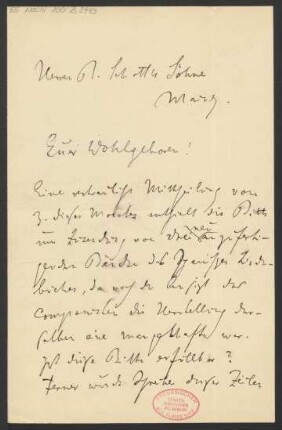 Herren B. Schott's Söhne
Mainz.
Euer Wohlgeboren!
Eine verehrliche Mittheilung vom
3. dieses Monats enthält die Bitte
um Zusendung von drei neu
den Bänden des Spanischen Lieder-
buches, da nach der Ansicht des
Componisten die Herstellung der-
selben eine mangelhafte war.
Ist diese Bitte erfüllbar?
Ferner würde Schreiber dieser Zeilen